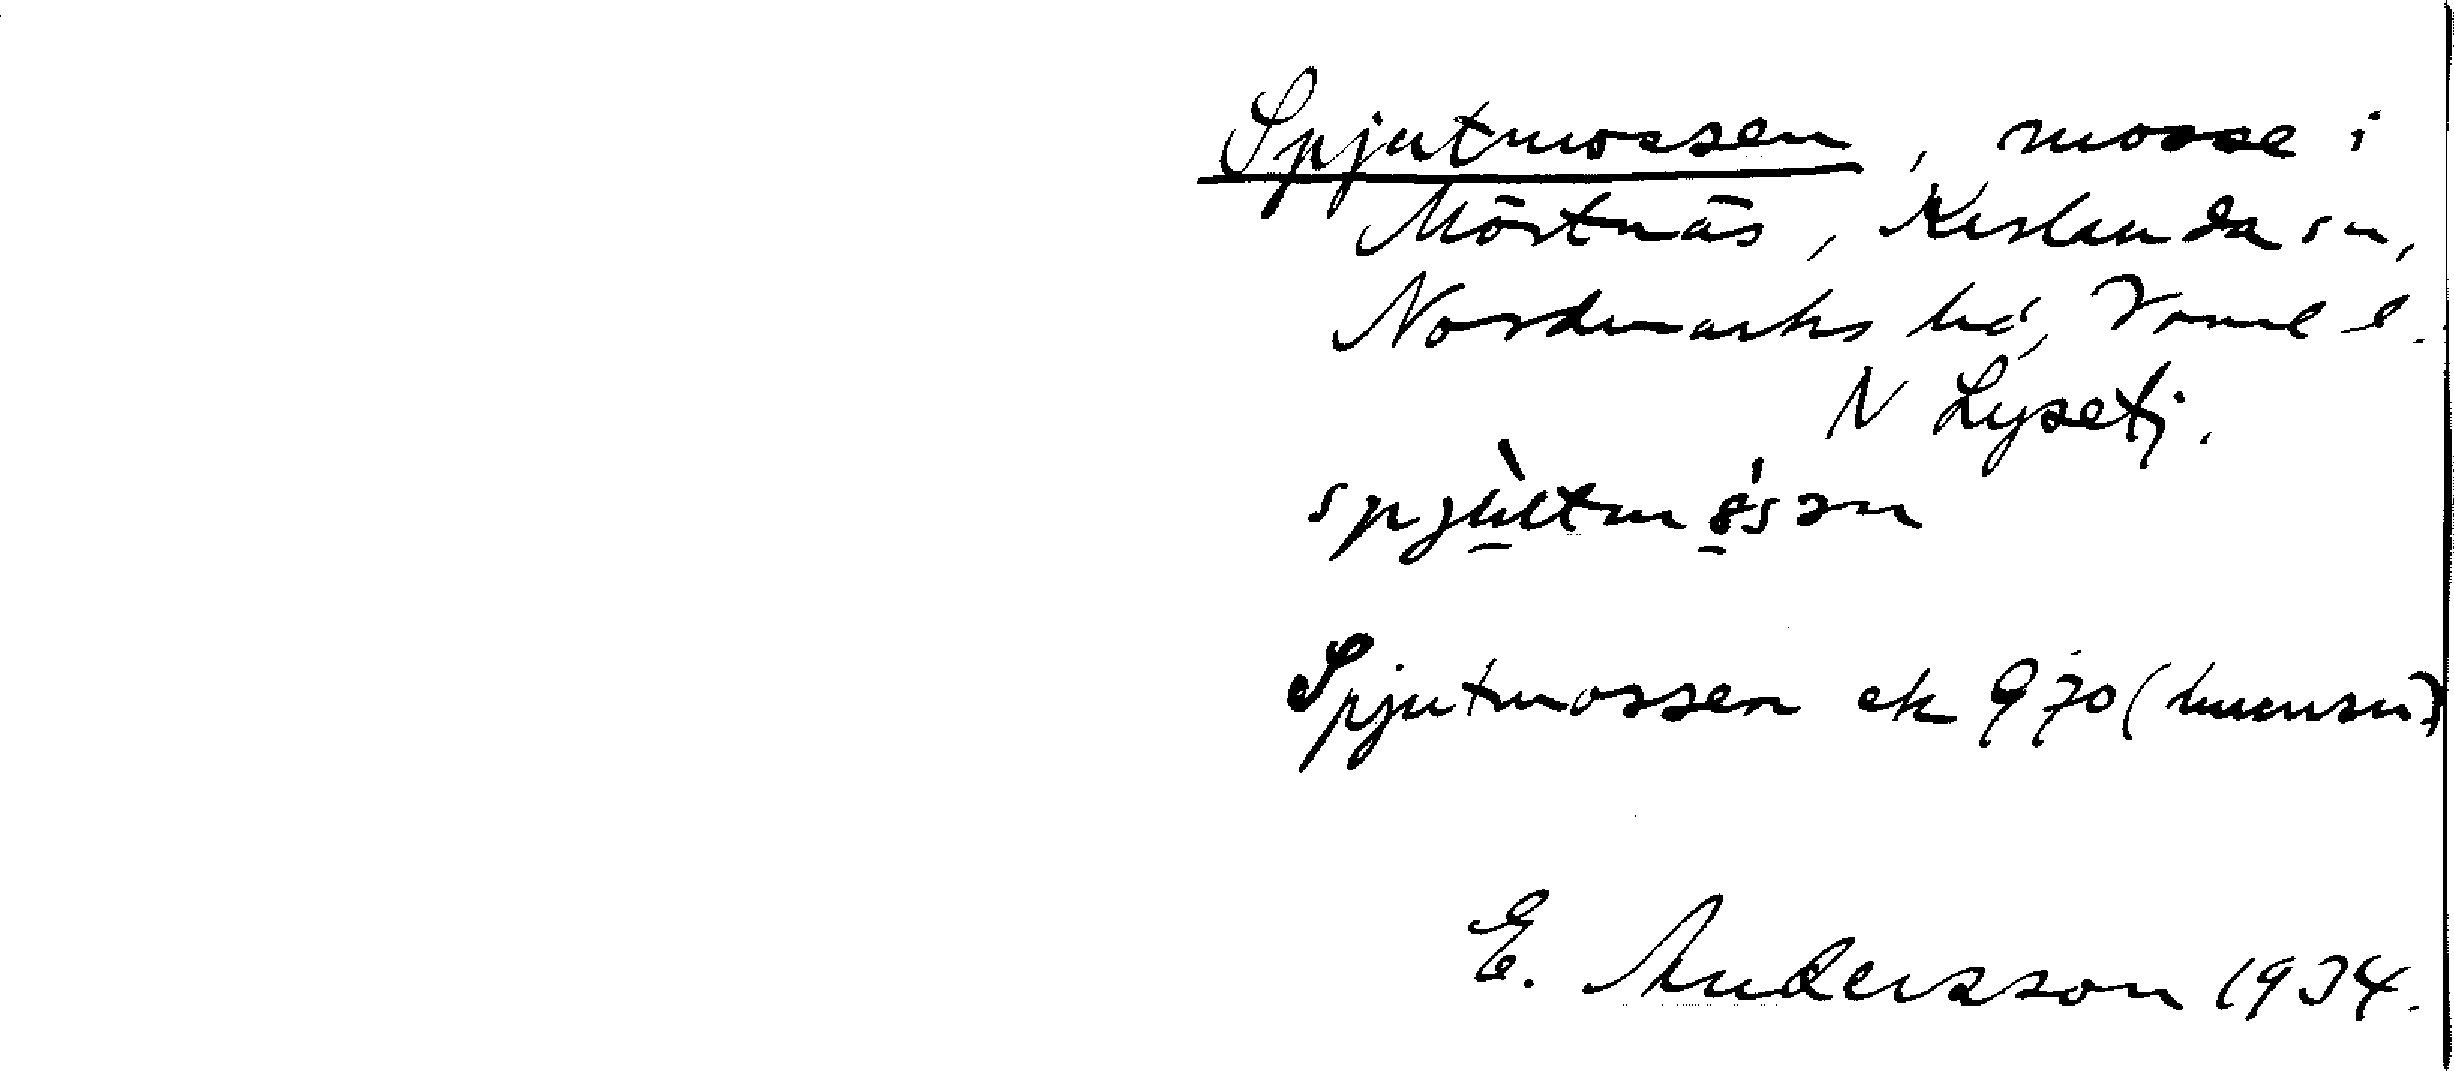 Spjutmossen, mosse i
Mörtnäs, Karlanda sn,
Nordmarks hd, Värml l.
N Lysetj.
spjùtmósən
Spjutmossen ek 970 (hemsn)
E. Andersson 1934.